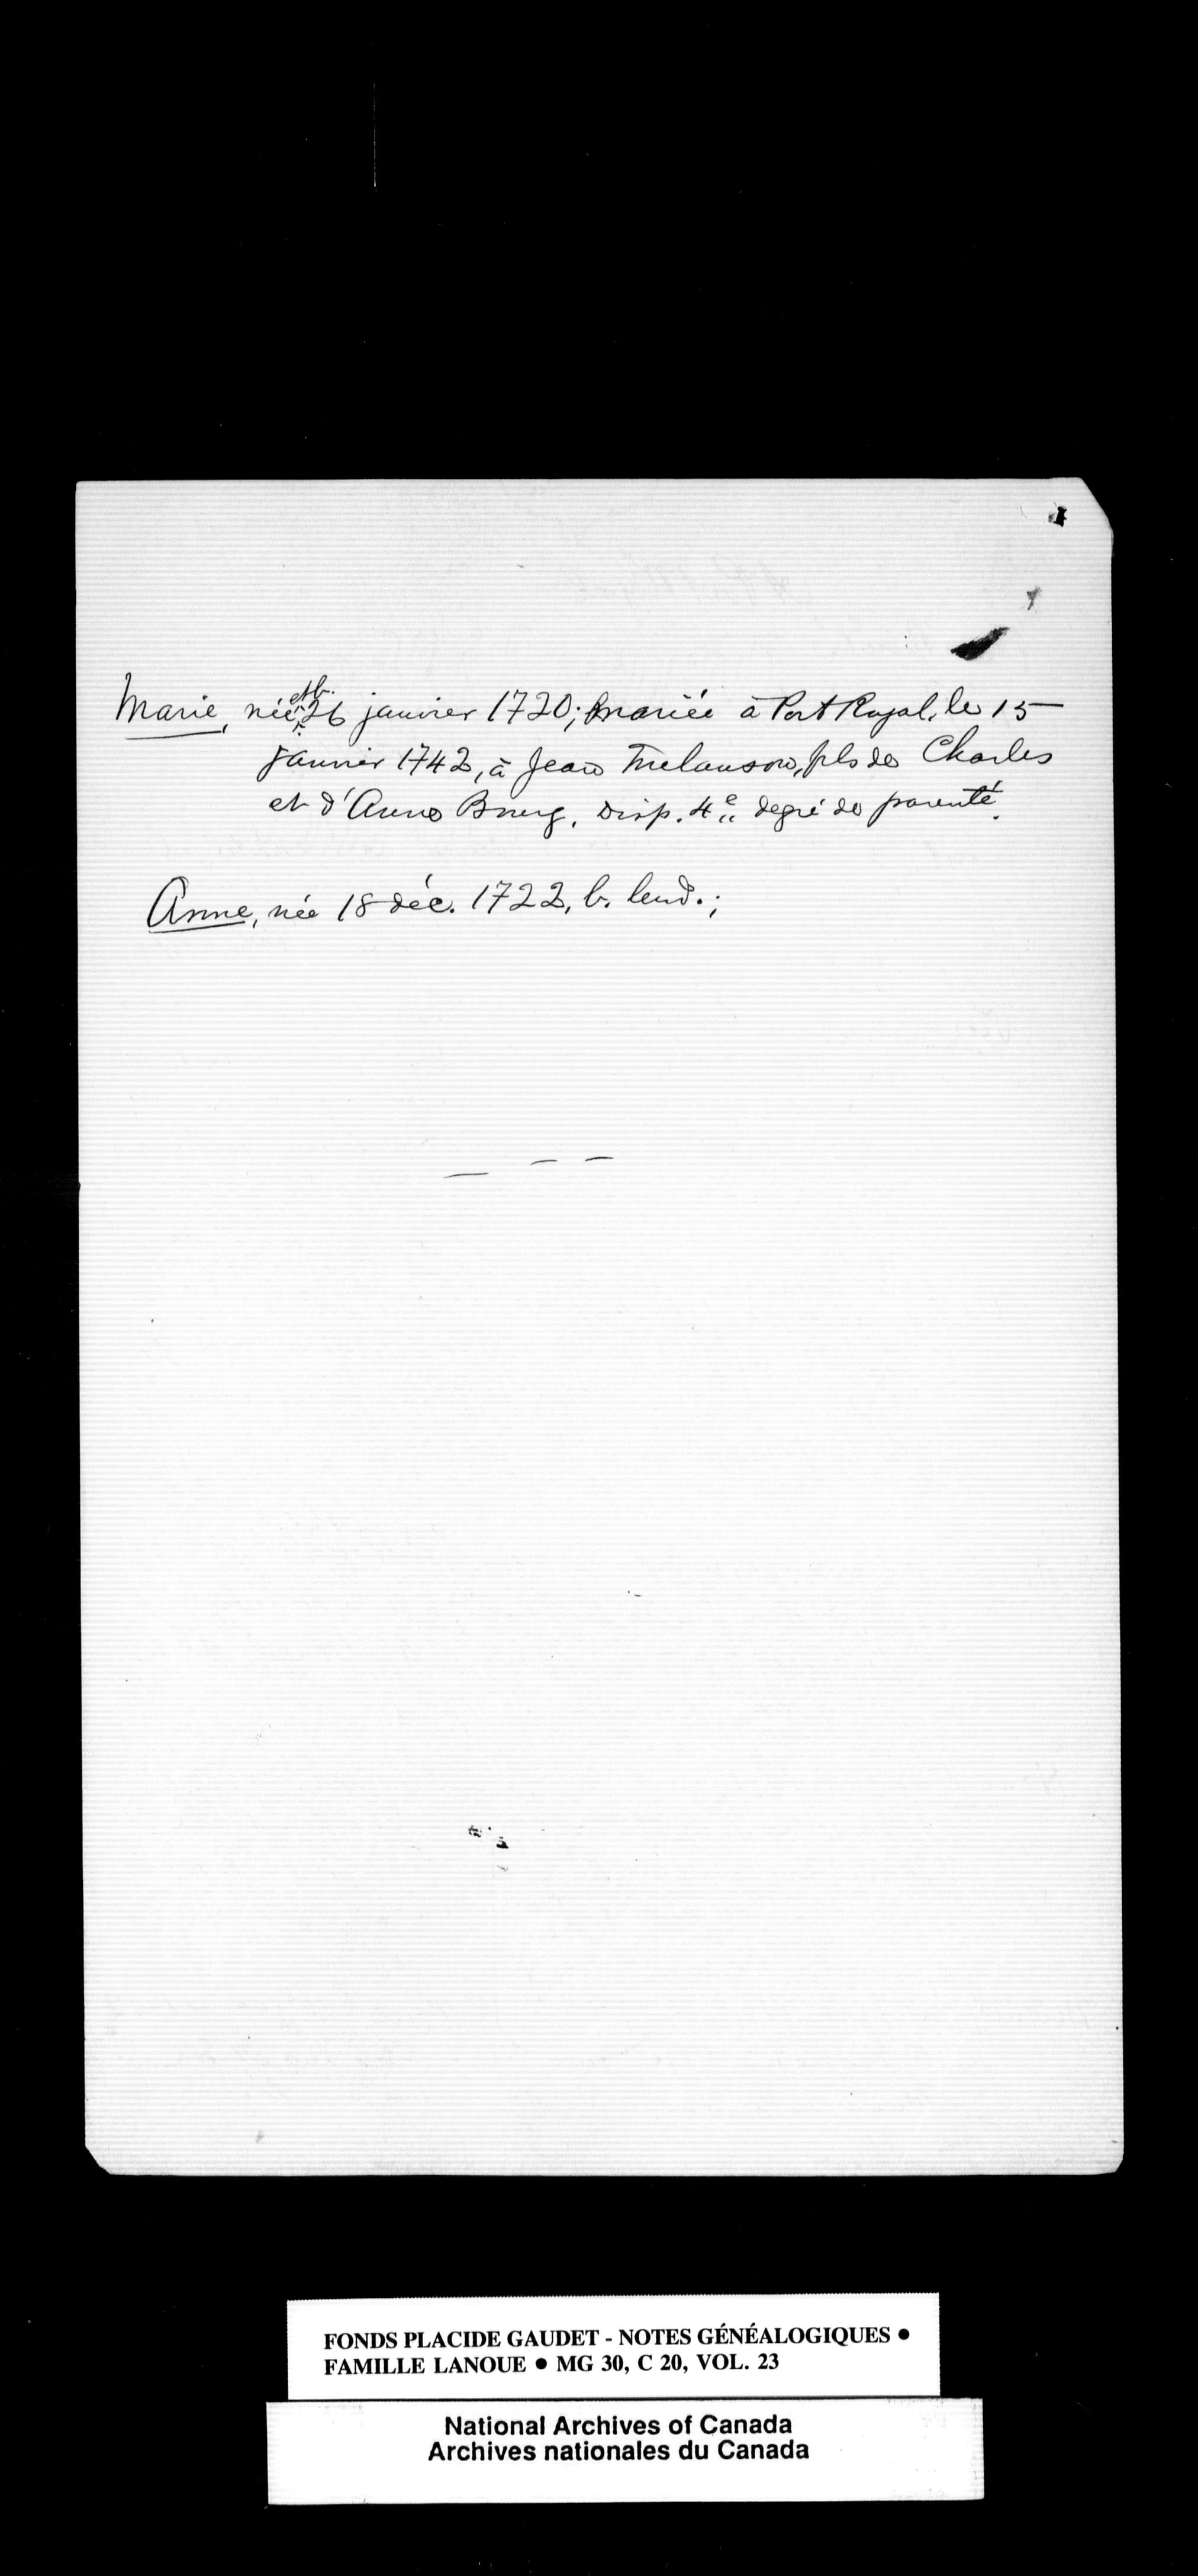 Marie, née et b. 26 janvier 1720; mariée à Port Royal, le 15
janvier 1742, à Jean Melanson, fils de Charles
et d'Anne Bourg. Disp. 4e degré de parenté.
Anne, née 18 déc. 1722, b. lend.;
FONDS PLACIDE GAUDET - NOTES GÉNÉALOGIQUES ●
FAMILLE LANOUE ● MG 30, C 20, VOL. 23
National Archives of Canada
Archives nationales du Canada